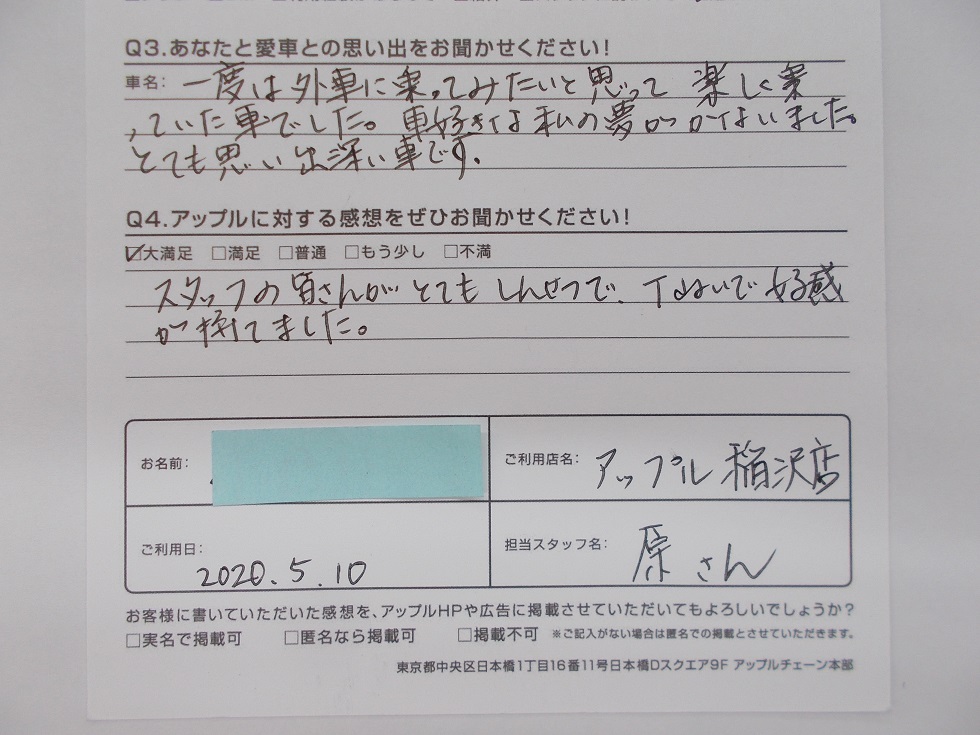 Q3.あなたと愛車との思い出をお聞かせください!
車名: 一度は外車に乗ってみたいと思って 楽しく乗
っていた車でした。車好きな私の夢がかないました。
とても思い出深い車です。
Q4.アップルに対する感想をぜひお聞かせください!
☑大満足 □満足 □普通 □もう少し □不満
スタッフの皆さんがとてもしんせつで、丁ねいで好感
が持てました。
お名前:
ご利用店名: アップル稲沢店
ご利用日: 2020.5.10
担当スタッフ名: 原さん
お客様に書いていただいた感想を、アップルHPや広告に掲載させていただいてもよろしいでしょうか?
□実名で掲載可 □匿名なら掲載可 □掲載不可 ※ご記入がない場合は匿名での掲載とさせていただきます。
東京都中央区日本橋1丁目16番11号日本橋Dスクエア9F アップルチェーン本部